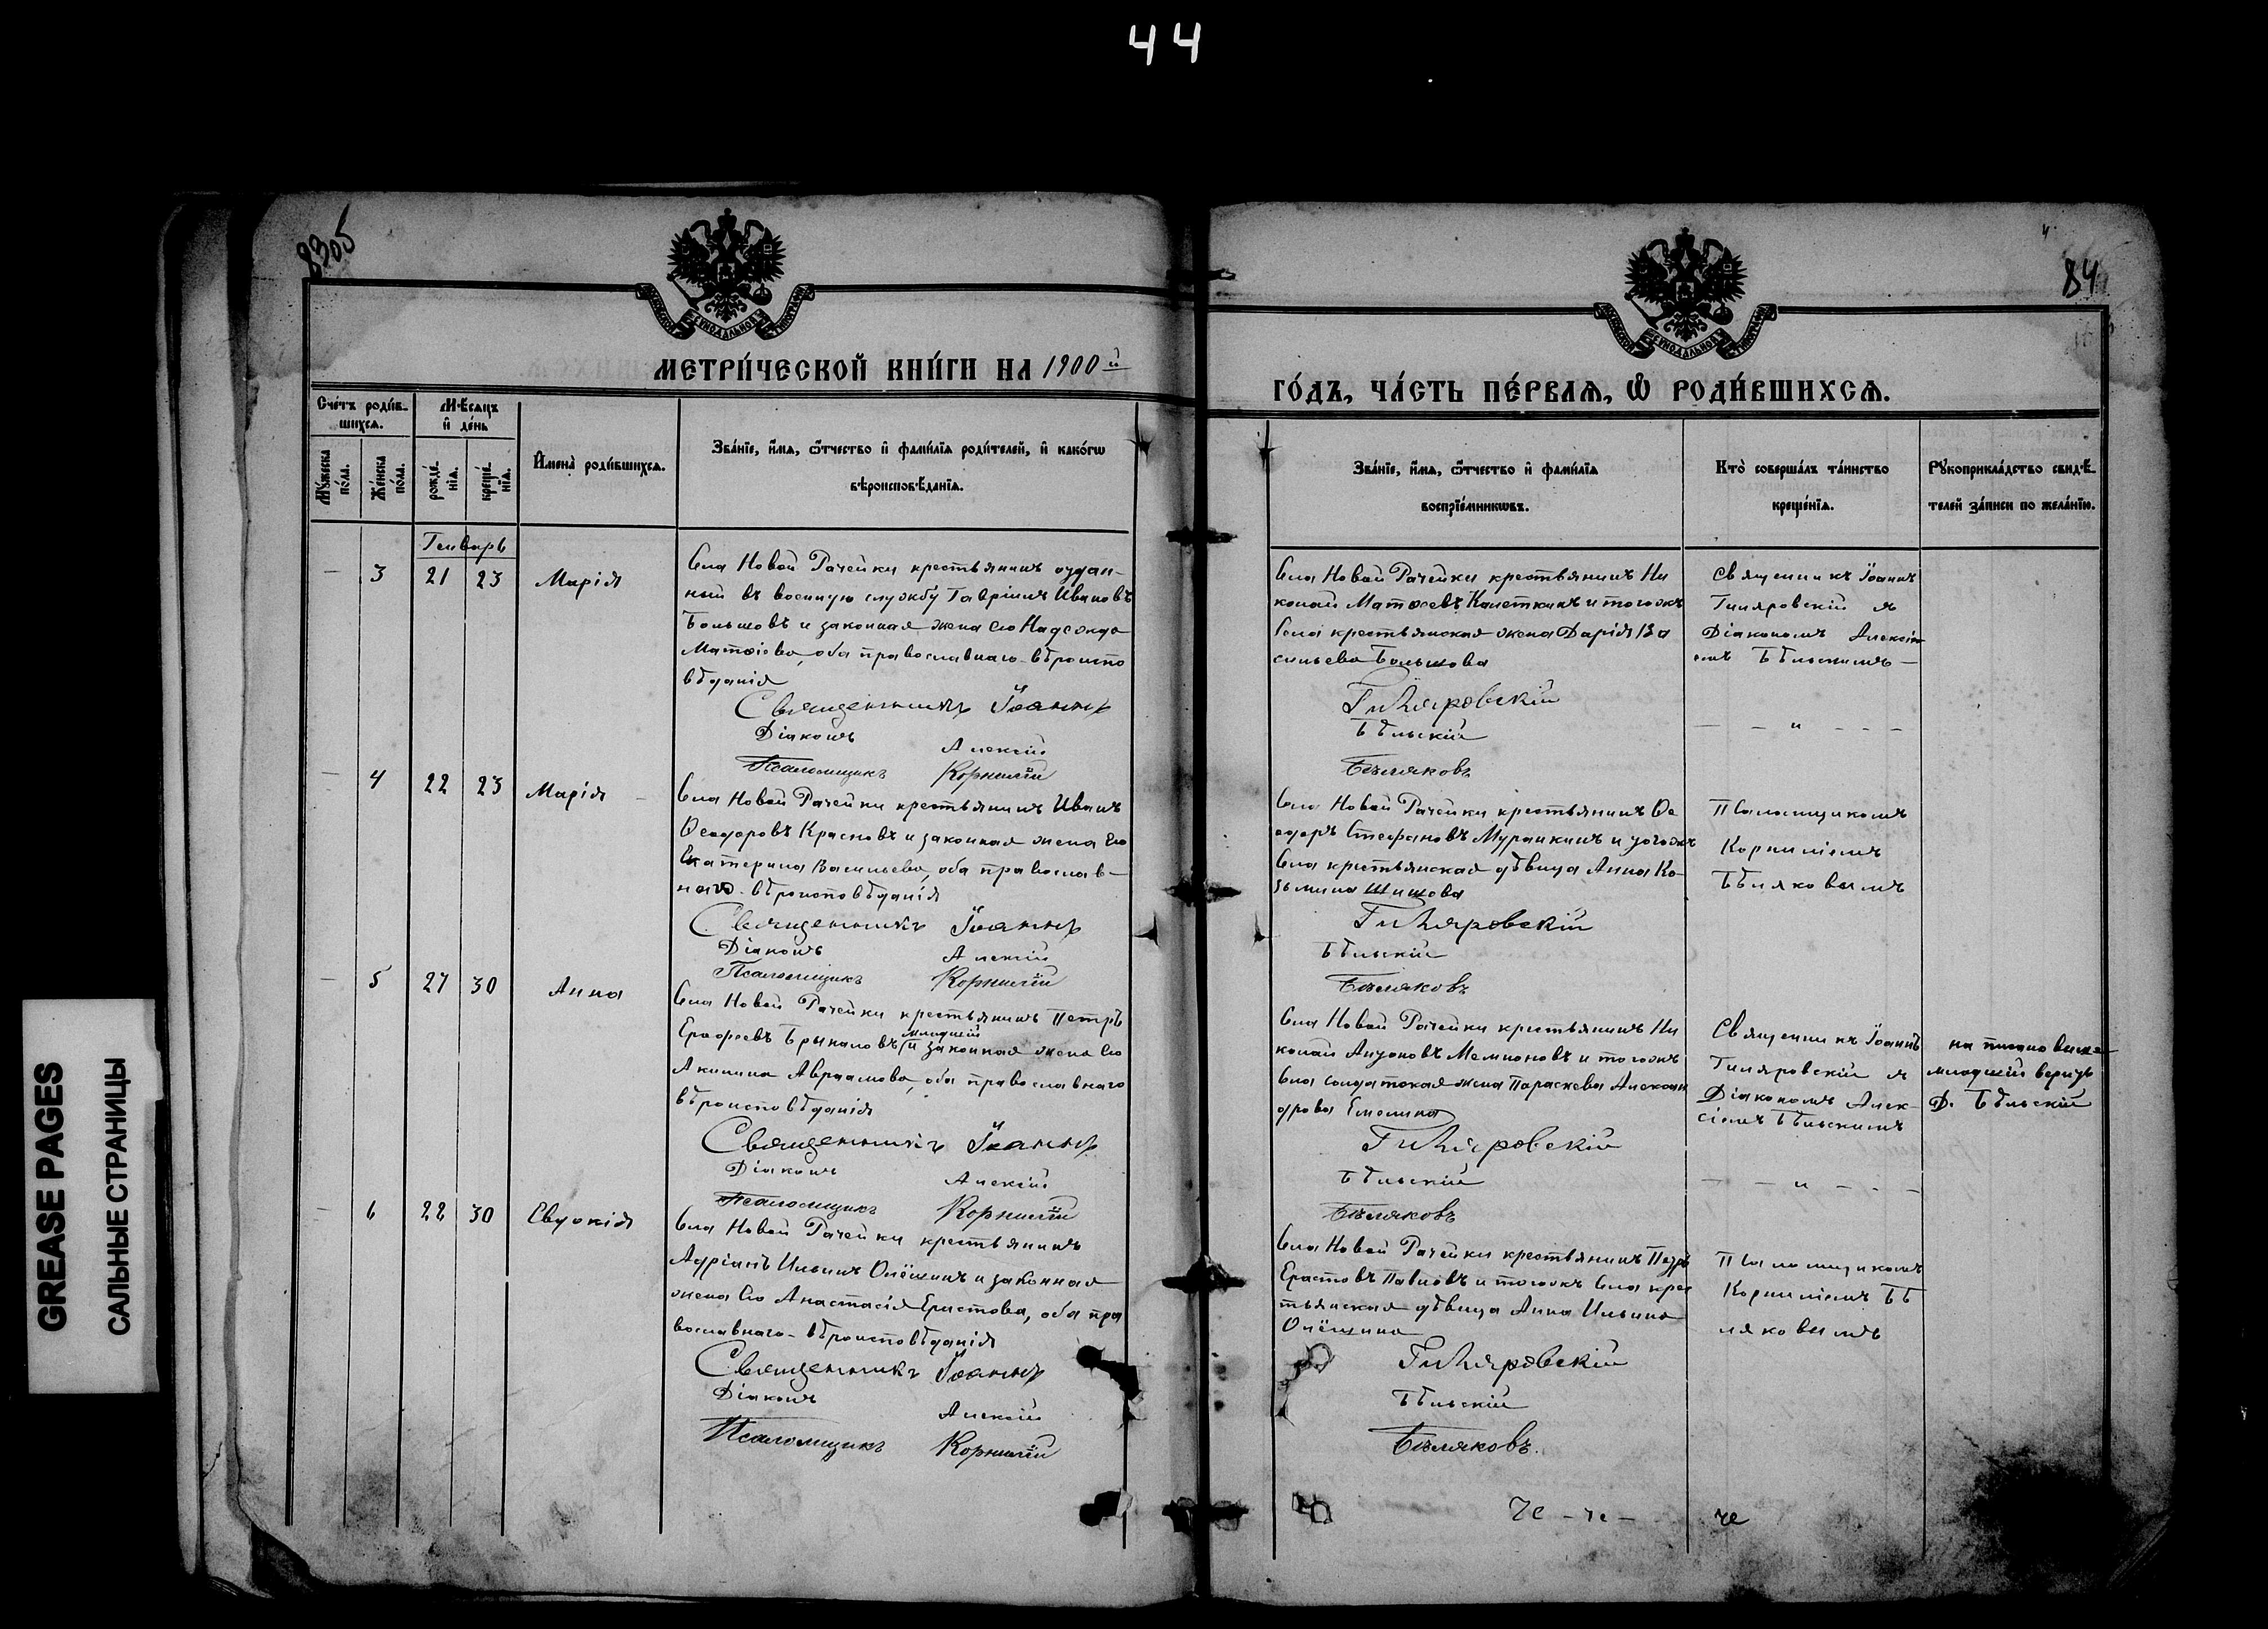 44
8305
84
МЕТРИ́ЧЕСКОЙ КНИ́ГИ НА 1900 й
ГО́ДЪ, ЧА́СТЬ ПЕ́РВАѦ, Ѡ РОДИ́ВШИХСѦ.
Сче́тъ роди́в-
шихсѧ.
Мꙋ́жеска по́ла.
Же́нска по́ла.
Мѣ́сѧцъ
и де́нь
рожде́-
нїѧ.
креще́-
нїѧ.
Имена̀ роди́вшихсѧ.
Зва́нїе, и́мѧ, ѻ́тчество и фами́лїѧ роди́телей, и како́гѡ
вѣроисповѣ́данїѧ.
Зва́нїе, и́мѧ, ѻ́тчество и фами́лїѧ
воспрїе́мникѡвъ.
Кто̀ соверша́лъ та́инство
креще́нїѧ.
Рꙋкоприкла́дство свидѣ́-
телей за́писи по жела́нїю.
Генварь
— 3 21 23 Марія
Села Новой Рачейки крестьянинъ отдан-
ный въ военную службу Гавріилъ Ивановъ
Большовъ и законная жена его Надежда
Матѳіева, оба православнаго вѣроиспо
вѣданія
Священникъ Іоаннъ
Діаконъ Алексій
Псаломщикъ Корнилій
Села Новой Рачейки крестьянинъ Ни
колай Матѳеевъ Калеткинъ и тогожъ
Села крестьянская жена Дарія Ва
сильева Большова
Гиляровскій
Бѣльскій
Бѣляковъ
Священникъ Іоаннъ
Гиляровскій съ
Діакономъ Алексі
емъ Бѣльскимъ —
— — „ — — —
— 4 22 23 Марія
Села Новой Рачейки крестьянинъ Иванъ
Ѳеодоровъ Красновъ и законная жена его
Екатерина Васильева, оба православ-
наго вѣроисповѣданія
Священникъ Іоаннъ
Діаконъ Алексій
Псаломщикъ Корнилій
Села Новой Рачейки крестьянинъ Ѳе
одоръ Стефановъ Мурашкинъ и тогожъ
Села крестьянская дѣвица Анна Ко-
зьмина Шишова
Гиляровскій
Бѣльскій
Бѣляковъ
Псаломщикомъ
Корниліемъ
Бѣляковымъ
— 5 27 30 Анна
Села Новой Рачейки крестьянинъ Петръ
младшій
Ероѳеевъ Брыкаловъ и законная жена его
Акилина Авраамова, оба православнаго
вѣроисповѣданія
Священникъ Іоаннъ
Діаконъ Алексій
Псаломщикъ Корнилій
Села Новой Рачейки крестьянинъ Ни
колай Антоновъ Мемноновъ и тогожъ
Села солдатская жена Параскева Алексан
дрова Емелина
Гиляровскій
Бѣльскій
Бѣляковъ
Священникъ Іоаннъ
Гиляровскій съ
Діакономъ Алек-
сіемъ Бѣльскимъ
— — „ — — —
младшій
Д. Бѣльскій
— 6 22 30 Евдокія
Села Новой Рачейки крестьянинъ
Адріанъ Ильинъ Олёшинъ и законная
жена его Анастасія Ерастова, оба пра
вославнаго вѣроисповѣданія
Священникъ Іоаннъ
Діаконъ Алексій
Псаломщикъ Корнилій
Села Новой Рачейки крестьянинъ Петръ
Ерастовъ Павловъ и тогожъ Села крес
тьянская дѣвица Анна Ильина
Олёшина
Гиляровскій
Бѣльскій
Бѣляковъ.
Псаломщикомъ
Корниліемъ Бѣ
ляковымъ
GREASE PAGES
САЛЬНЫЕ СТРАНИЦЫ